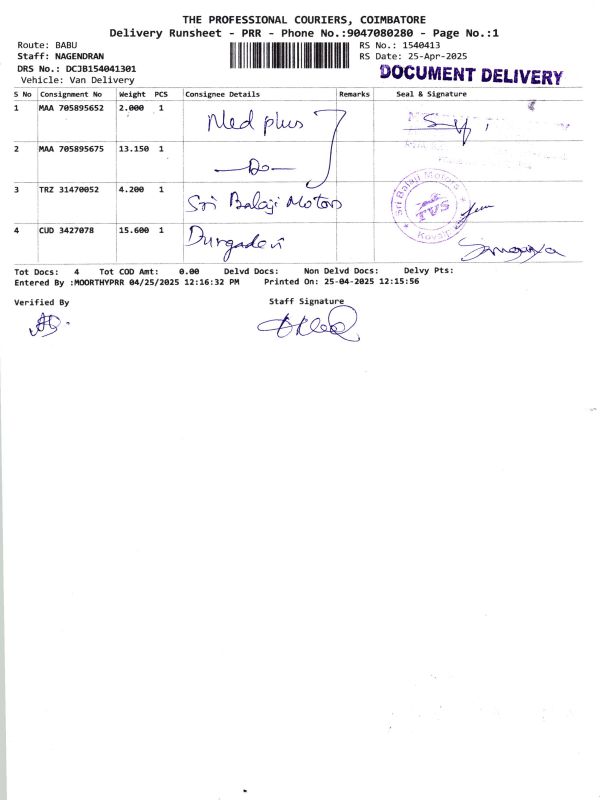 THE PROFESSIONAL COURIERS, COIMBATORE
Delivery Runsheet - PRR - Phone No.:9047080280 - Page No.:1
Route: BABU
Staff: NAGENDRAN
DRS No.: DCJB154041301
Vehicle: Van Delivery
RS No.: 1540413
RS Date: 25-Apr-2025
DOCUMENT DELIVERY
S No Consignment No Weight PCS Consignee Details Remarks Seal & Signature
1 MAA 705895652 2.000 1 Med plus
2 MAA 705895675 13.150 1 —Do—
3 TRZ 31470052 4.200 1 Sri Balaji Motors
Sri Balaji Motors
TVS
4 CUD 3427078 15.600 1 Durgadevi
Tot Docs: 4 Tot COD Amt: 0.00 Delvd Docs: Non Delvd Docs: Delvy Pts:
Entered By :MOORTHYPRR 04/25/2025 12:16:32 PM Printed On: 25-04-2025 12:15:56
Verified By Staff Signature